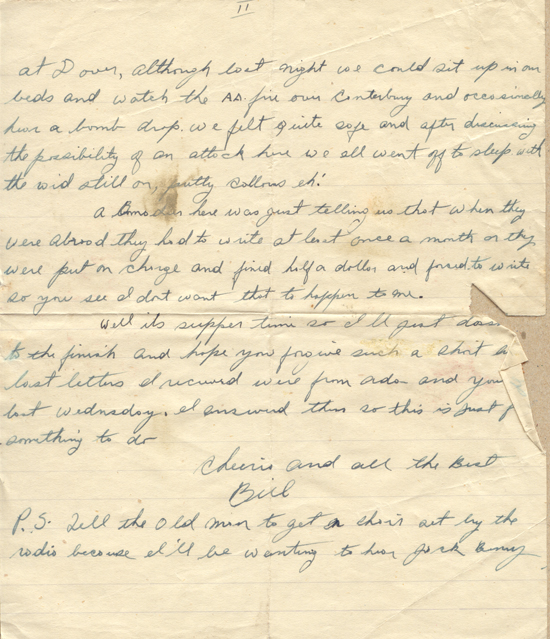 II
at Dover, although last night we could set up in our
beds and watch the AA fire over Canterbury and occasionally
hear a bomb drop. We felt quite safe and after discussing
the possibility of an attack here we all went off to sleep with
the raid still on, pretty callous eh!
a here was just telling us that when they
were abroad they had to write at least once a month or they
were put on charge and fined half a dollar and forced to write
so you see I dont want that to happen to me.
Well its supper time so I'll just
to the finish and hope you forgive such a short
last letters I received were from and you
last Wednesday. I answered them so this is just
something to do
Cheerio and all the Best
Bill
P.S. Tell the Old Man to get a chair set by the
radio because I'll be wanting to hear Jack Benny